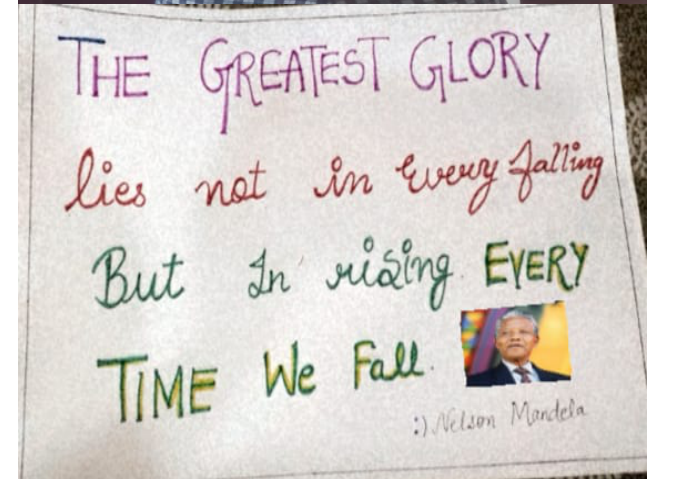 THE GREATEST GLORY
lies not in Every falling
But In rising EVERY
TIME We Fall.
:) Nelson Mandela